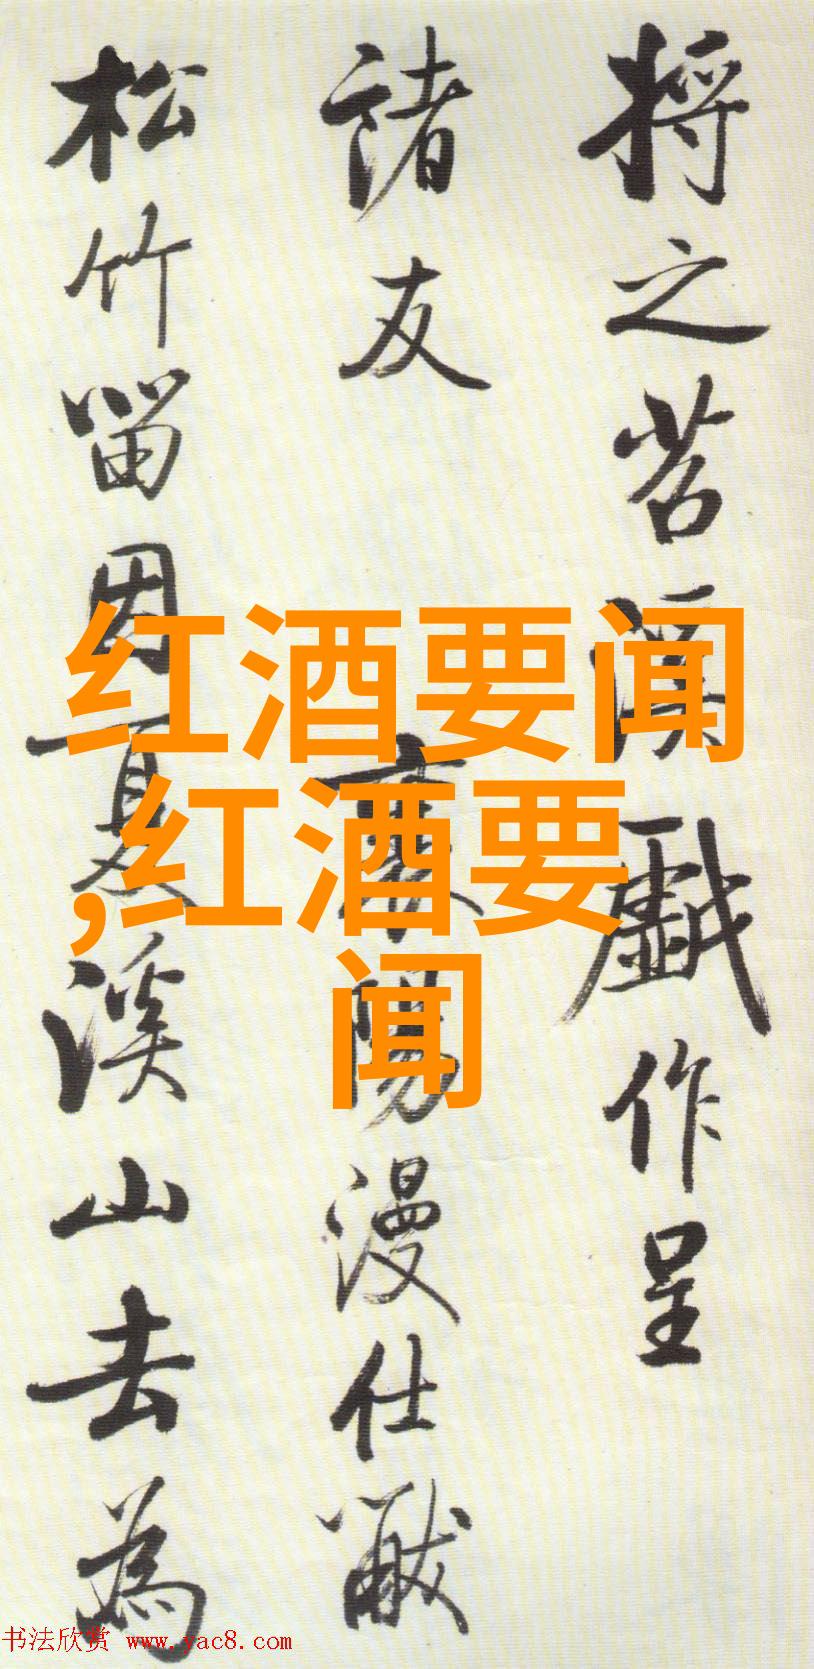 将之苕溪戲作呈
諸友
襄陽漫仕黻
松竹留因夏溪山去為
红酒要闻
,红酒要
闻
书法欣赏 www.yac8.com